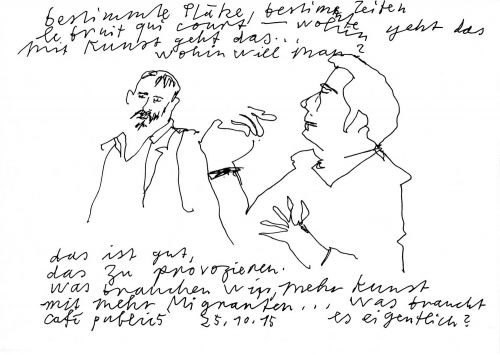 bestimmte Plätze, bestimmte Zeiten
le bruit qui court — wohin geht das
mit Kunst geht das...
wohin will man?
das ist gut,
das zu provozieren.
was brauchen wir, mehr Kunst
mit mehr Migranten... was braucht
café publics 25.10.15 es eigentlich?